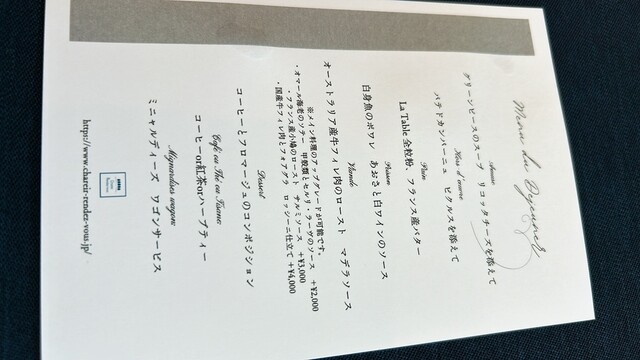 Menu du Dejeuner
Amuse
グリーンピースのスープ リコッタチーズを添えて
Hors d'œuvre
パテドカンパーニュ ピクルスを添えて
Pain
La Table 全粒粉、フランス産バター
Poisson
白身魚のポワレ あおさと白ワインのソース
Viande
オーストラリア産牛フィレ肉のロースト マデラソース
※メイン料理のアップグレードが可能です。
・オマール海老のソテー 甲殻類とセルリ・ラーヴのソース +¥2,000
・フランス産小鳩のロースト サルミソース +¥3,000
・国産牛フィレ肉とフォアグラ ロッシーニ仕立て +¥4,000
Dessert
コーヒーとフロマージュのコンポジション
Café ou Thé ou Tisane
コーヒーor紅茶orハーブティー
Mignardises wagons
ミニャルディーズ ワゴンサービス
https://www.chareir-rendez-vous.jp/